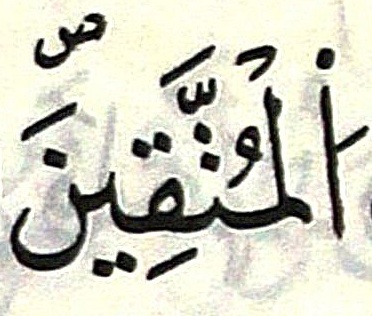 اَ۬لْمُتَّقِينَۖ